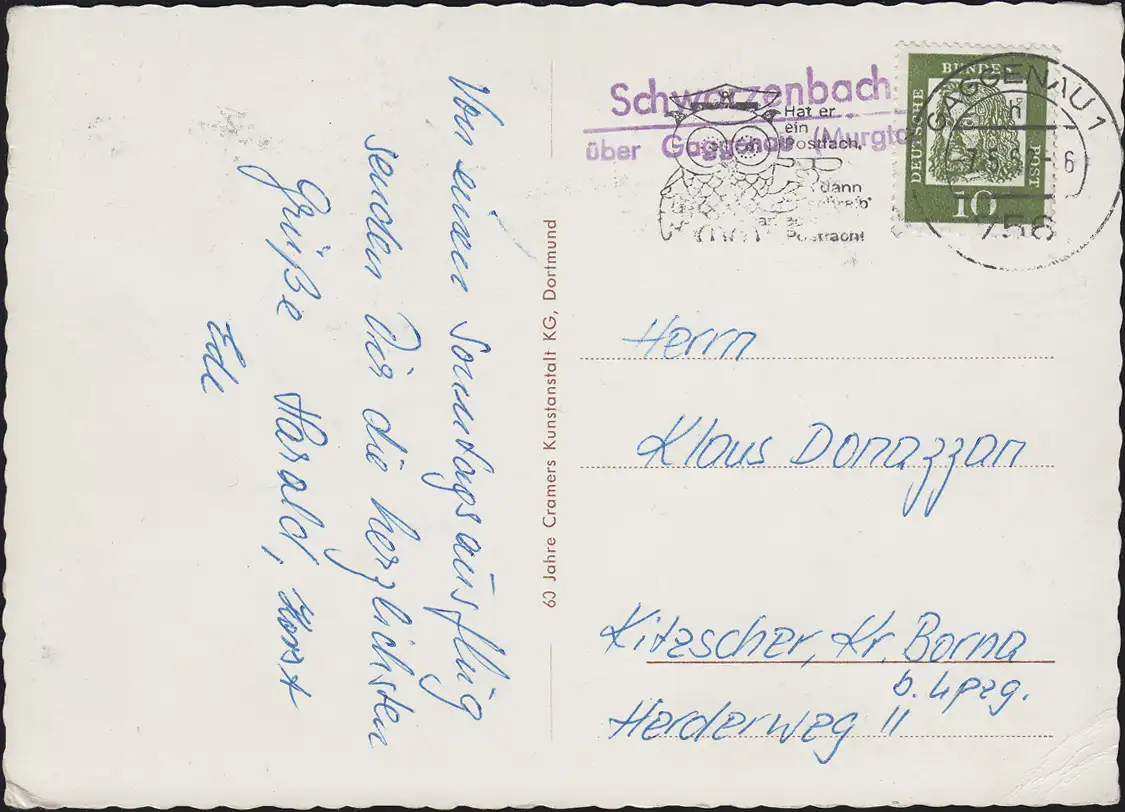 Von einem Sonntagsausflug
senden Dir die herzlichsten
Grüße Harald, Horst
Edi
60 Jahre Cramers Kunstanstalt KG, Dortmund
Schwarzenbach
über Gaggenau (Murgtal
Hat er
ein
Postfach,
dann
Postfach!
DEUTSCHE BUNDES POST
10
GAGGENAU 1
756
Herrn
Klaus Donazzan
Kitzscher, Kr. Borna
b. Lpzg.
Herderweg 11